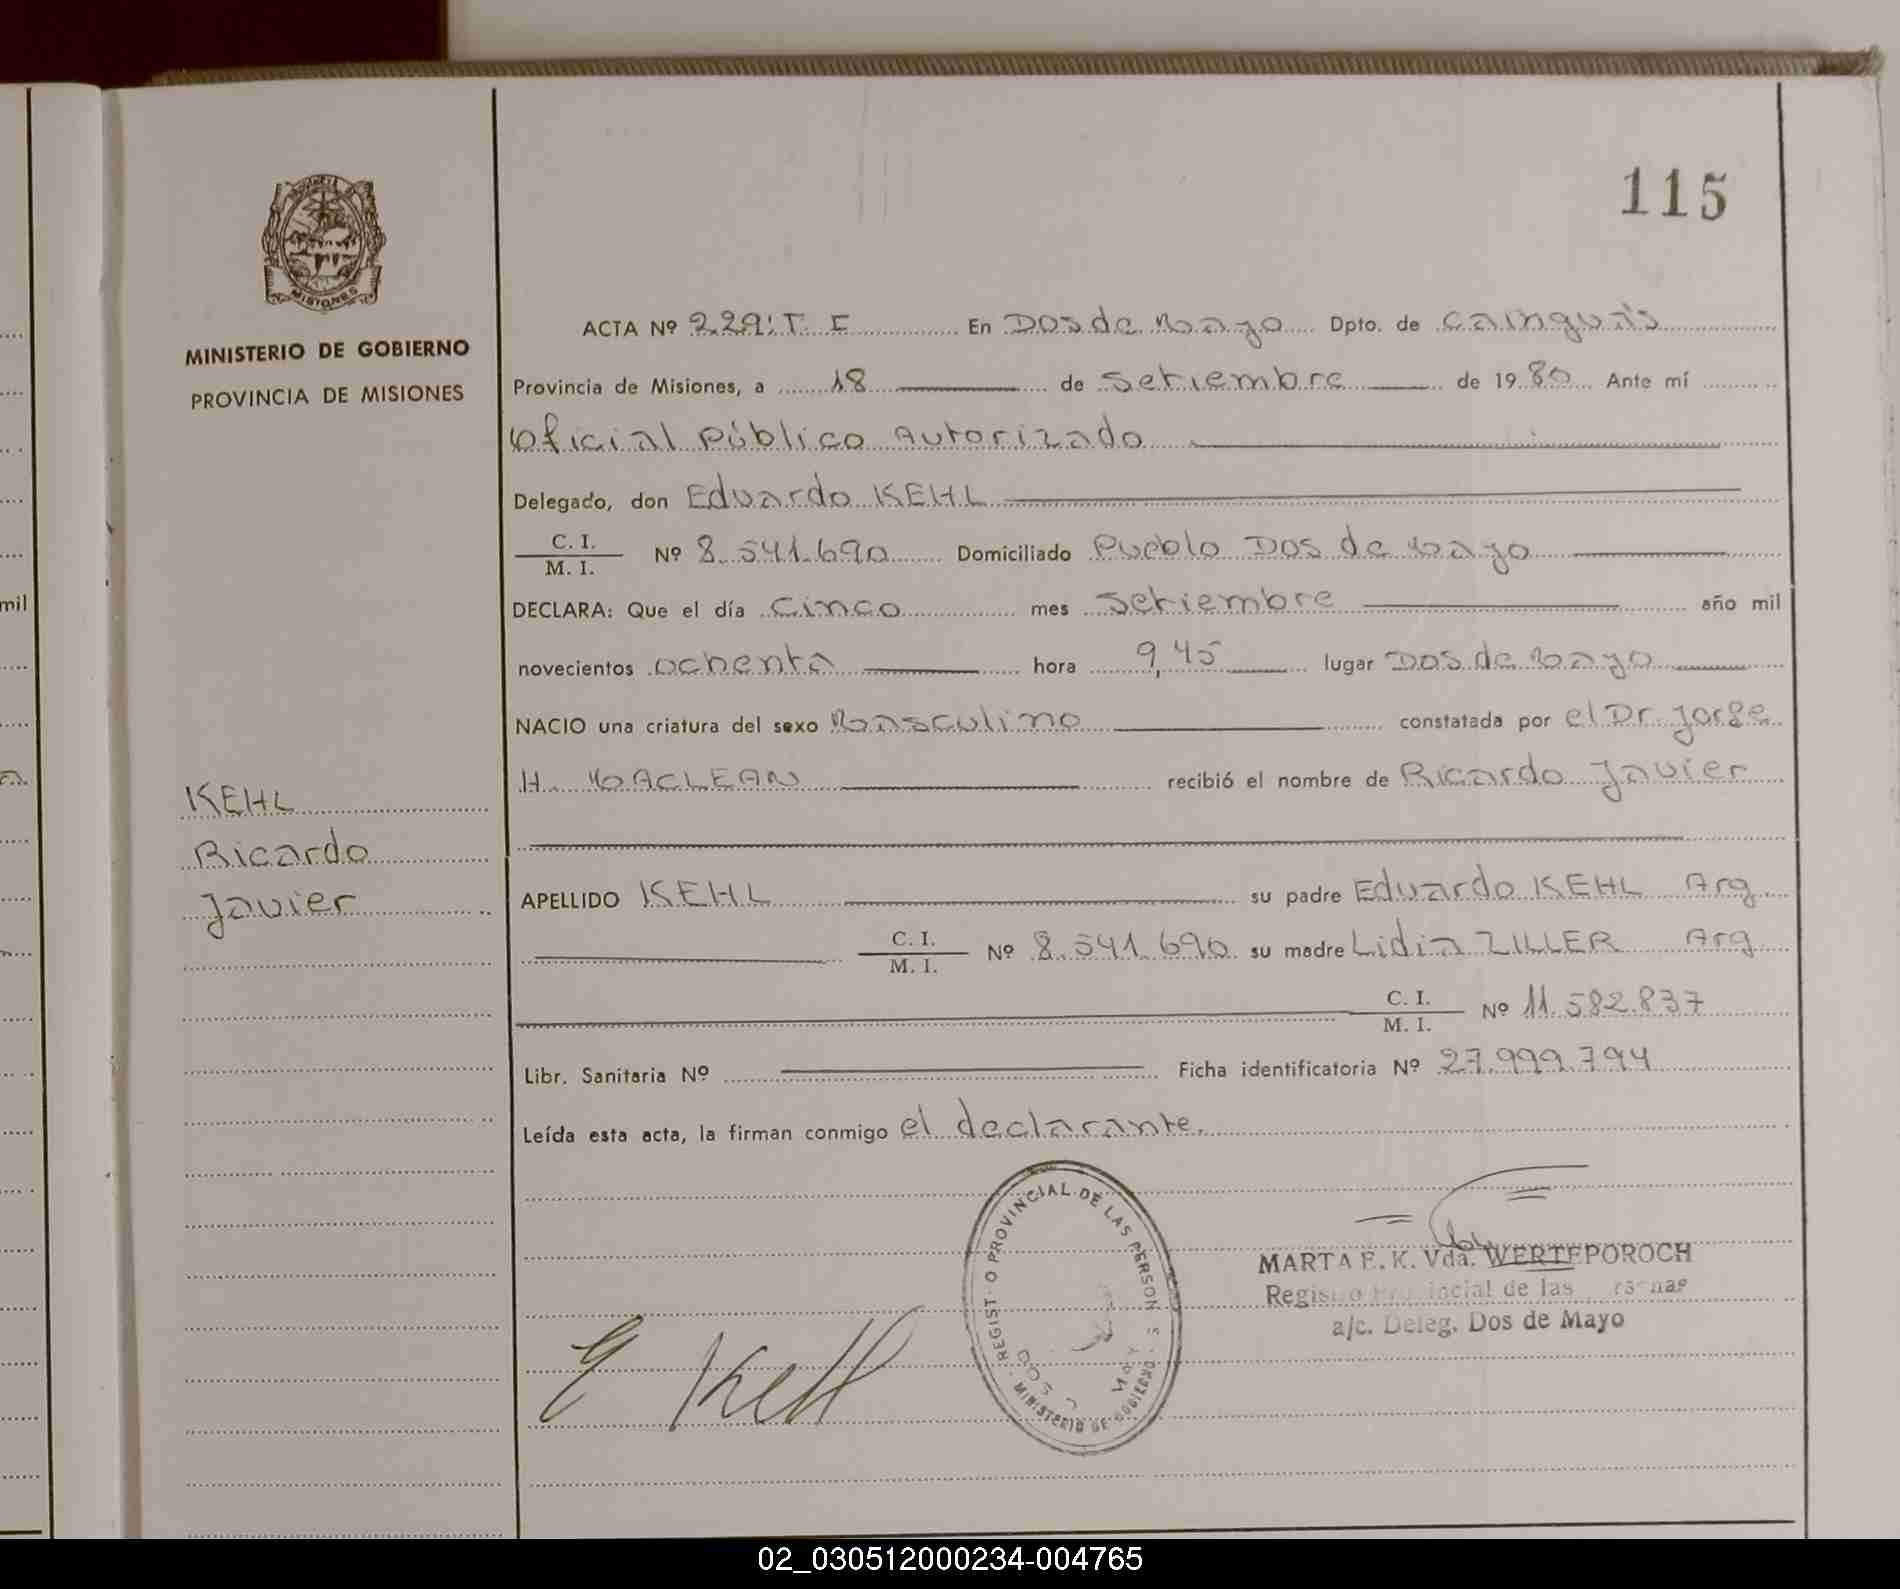 115
MISIONES
MINISTERIO DE GOBIERNO
PROVINCIA DE MISIONES
ACTA Nº 229:T. I En Dos de Mayo Dpto. de Cainguás
Provincia de Misiones, a 18 de Setiembre de 1980 Ante mí
Oficial Público Autorizado
Delegado, don Eduardo KEHL
C. I. / M. I. Nº 8.541.690 Domiciliado Pueblo Dos de Mayo
DECLARA: Que el día Cinco mes Setiembre año mil
novecientos ochenta hora 9,45 lugar Dos de Mayo
NACIO una criatura del sexo Masculino constatada por el Dr. Jorge
H. MACLEAN recibió el nombre de Ricardo Javier
KEHL
Ricardo
Javier
APELLIDO KEHL su padre Eduardo KEHL Arg.
C. I. / M. I. Nº 8.541.690 su madre Lidia ZILLER Arg
C. I. / M. I. Nº 11.582.837
Libr. Sanitaria Nº Ficha identificatoria Nº 27.999.794
Leída esta acta, la firman conmigo el declarante.
REGIST O PROVINCIAL DE LAS PERSON S
MINISTERIO DE GOBIERNO
DOS
MAY
E Kehl
MARTA E. K. Vda. WERTEPOROCH
Registro Provincial de las
a/c. Deleg. Dos de Mayo
mil
02_030512000234-004765